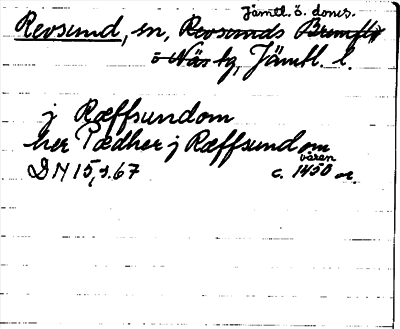 Jämtl. ö. doms.
Revsund, sn, Revsunds
o Näs tg, Jämtl. l.
j Ræffsundom
her Pædher j Ræffsundom
våren
DN 15, s. 67 c. 1450 or.